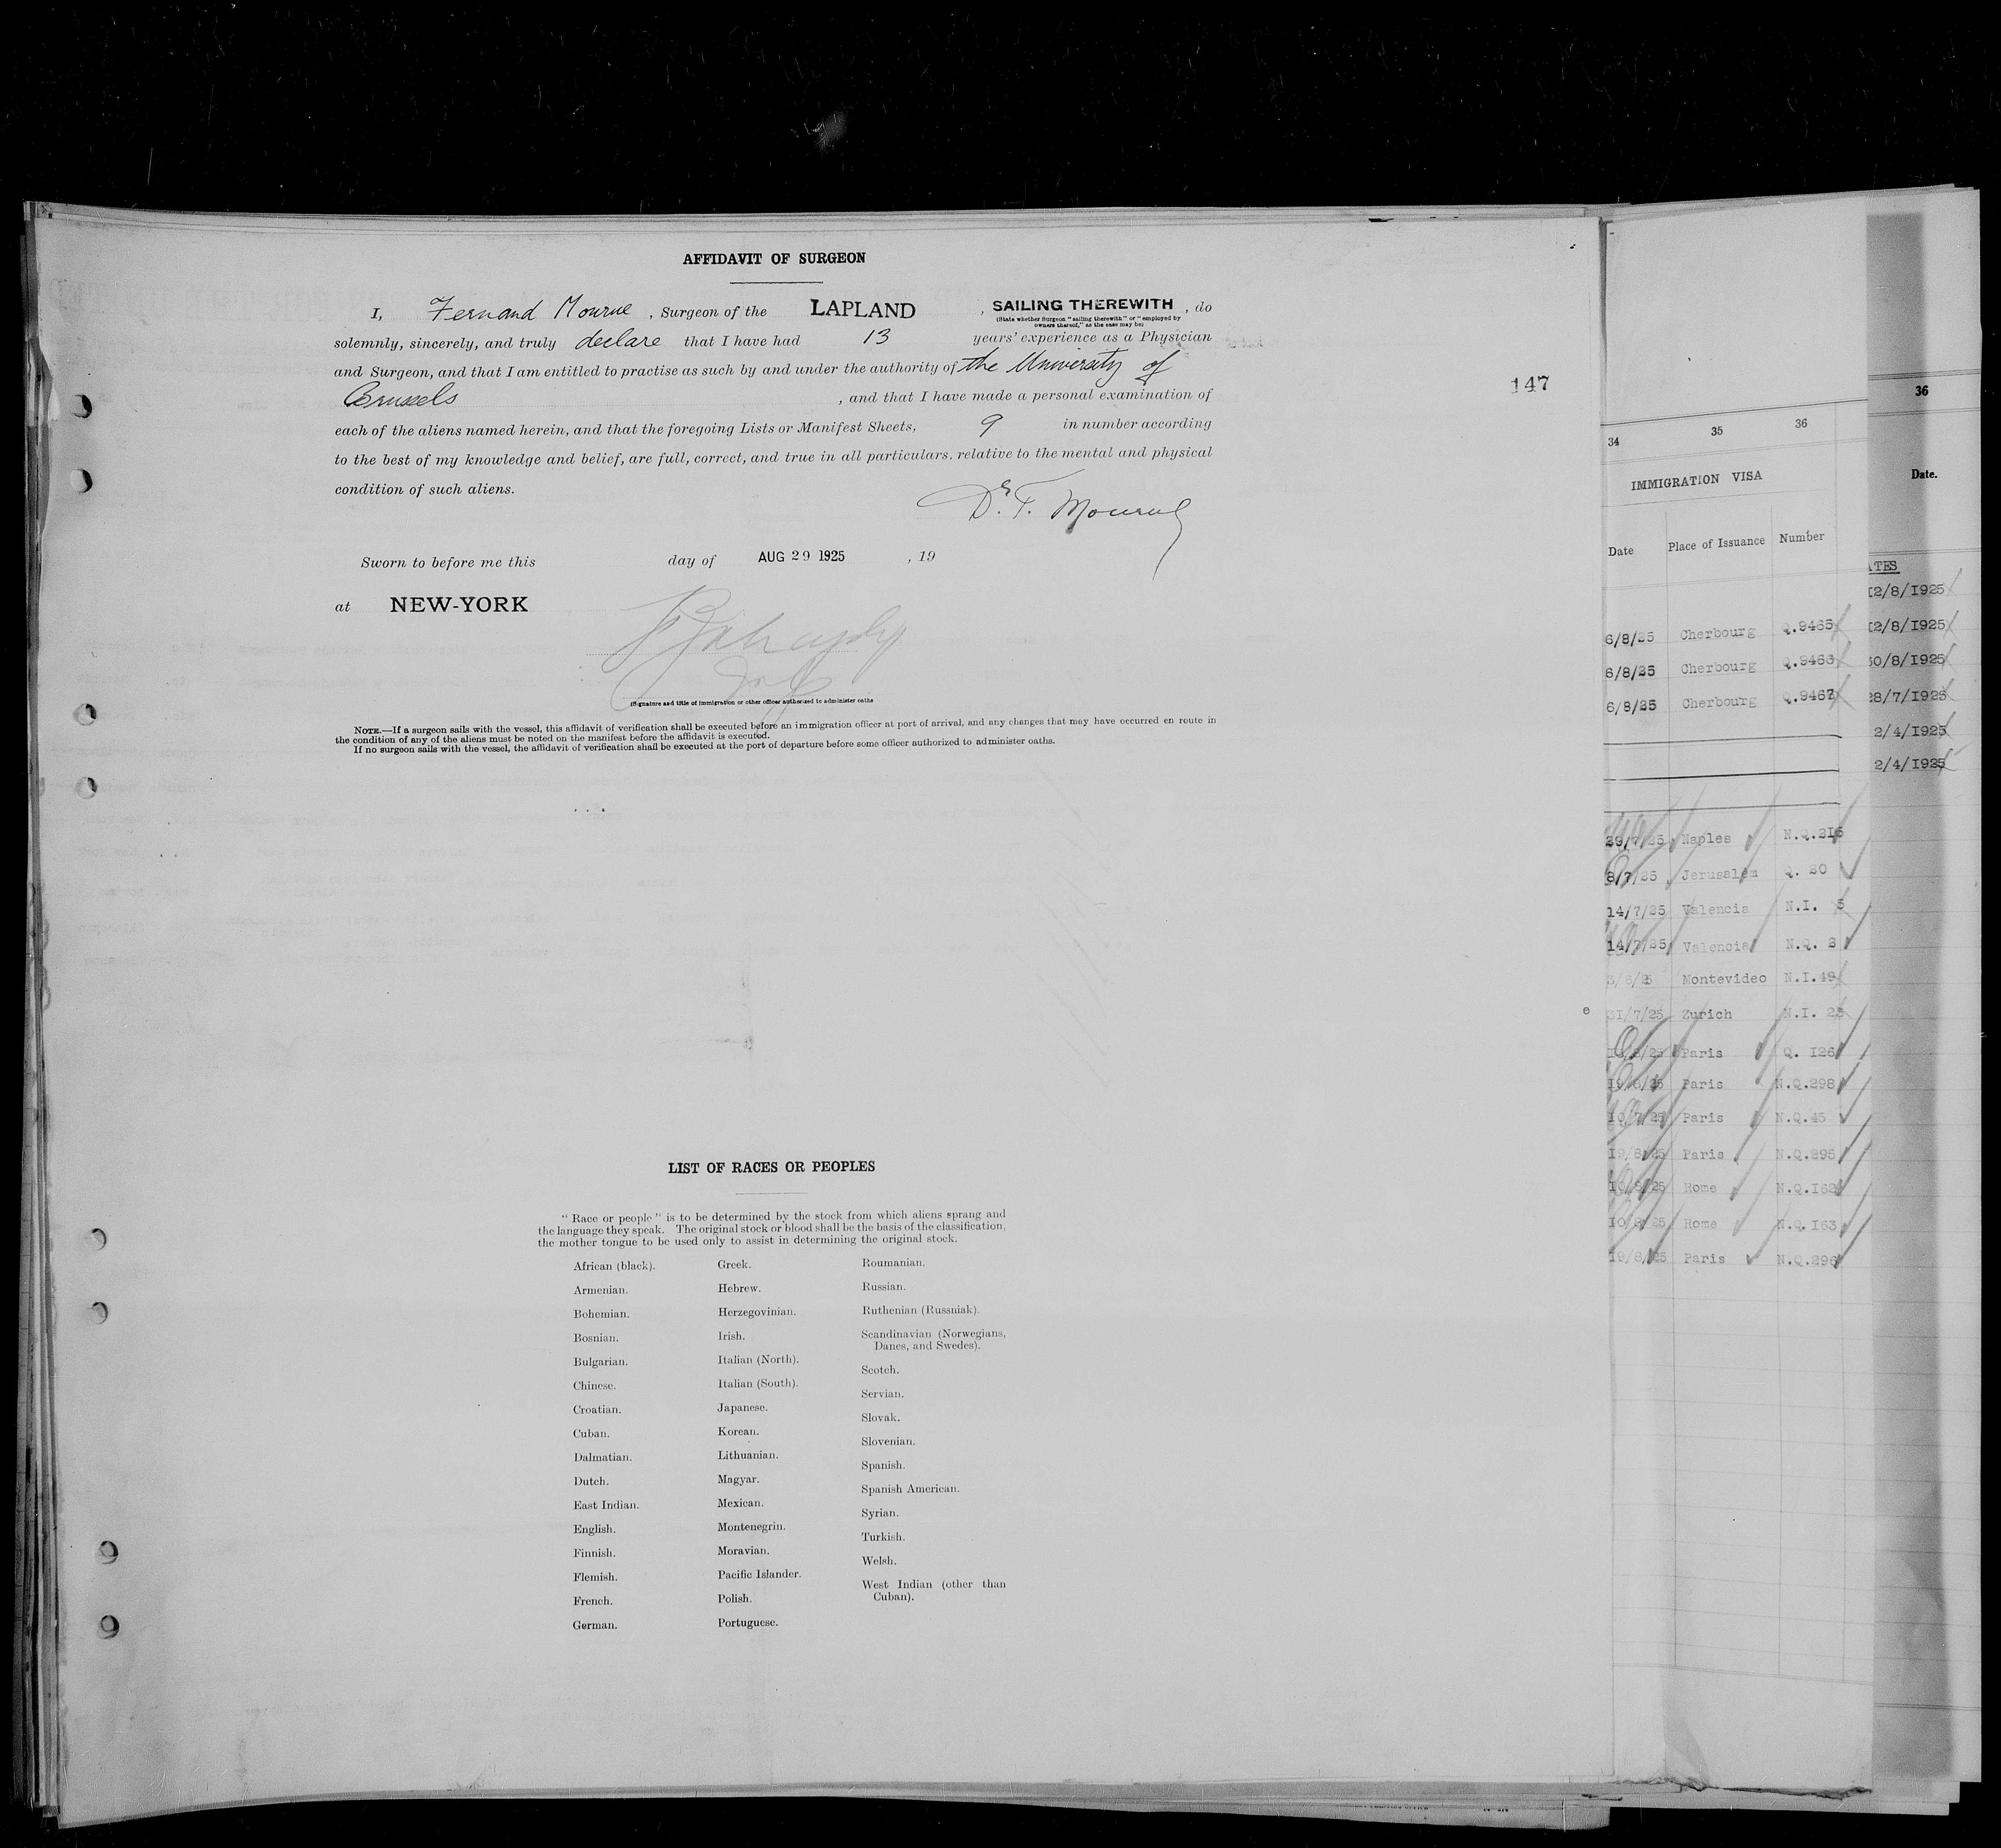 AFFIDAVIT OF SURGEON
I, Fernand Mourue, Surgeon of the LAPLAND, SAILING THEREWITH, do
(State whether Surgeon "sailing therewith" or "employed by
owners thereof," as the case may be)
solemnly, sincerely, and truly declare that I have had 13 years' experience as a Physician
and Surgeon, and that I am entitled to practise as such by and under the authority of the University of
Brussels, and that I have made a personal examination of
each of the aliens named herein, and that the foregoing Lists or Manifest Sheets, 9 in number according
to the best of my knowledge and belief, are full, correct, and true in all particulars, relative to the mental and physical
condition of such aliens.
Dr. F. Mourue
Sworn to before me this day of AUG 29 1925, 19
at NEW-YORK
(Signature and title of immigration or other officer authorized to administer oaths
NOTE.—If a surgeon sails with the vessel, this affidavit of verification shall be executed before an immigration officer at port of arrival, and any changes that may have occurred en route in
the condition of any of the aliens must be noted on the manifest before the affidavit is executed.
If no surgeon sails with the vessel, the affidavit of verification shall be executed at the port of departure before some officer authorized to administer oaths.
147
LIST OF RACES OR PEOPLES
"Race or people" is to be determined by the stock from which aliens sprang and
the language they speak. The original stock or blood shall be the basis of the classification,
the mother tongue to be used only to assist in determining the original stock.
African (black).
Armenian.
Bohemian.
Bosnian.
Bulgarian.
Chinese.
Croatian.
Cuban.
Dalmatian.
Dutch.
East Indian.
English.
Finnish.
Flemish.
French.
German.
Greek.
Hebrew.
Herzegovinian.
Irish.
Italian (North).
Italian (South).
Japanese.
Korean.
Lithuanian.
Magyar.
Mexican.
Montenegrin.
Moravian.
Pacific Islander.
Polish.
Portuguese.
Roumanian.
Russian.
Ruthenian (Russniak).
Scandinavian (Norwegians,
Danes, and Swedes).
Scotch.
Servian.
Slovak.
Slovenian.
Spanish.
Spanish American.
Syrian.
Turkish.
Welsh.
West Indian (other than
Cuban).
34 35 36
IMMIGRATION VISA
Date Place of Issuance Number
6/8/25 Cherbourg Q.9465
6/8/25 Cherbourg Q.9466
6/8/25 Cherbourg Q.9467
29/7/25 Naples N.Q.216
8/7/25 Jerusalem Q. 20
14/7/25 Valencia N.I. 5
14/7/25 Valencia N.Q. 2
3/6/25 Montevideo N.I.49
e
31/7/25 Zurich N.I. 23
Paris Q. I26
19/8/25 Paris N.Q.298
10/7/25 Paris N.Q.45
19/8/25 Paris N.Q.295
10/8/25 Rome N.Q.I62
10/8/25 Rome N.Q.I63
19/8/25 Paris N.Q.296
36
Date.
ATES
I2/8/I925
I2/8/I925
30/8/I925
28/7/I925
2/4/I925
2/4/I925